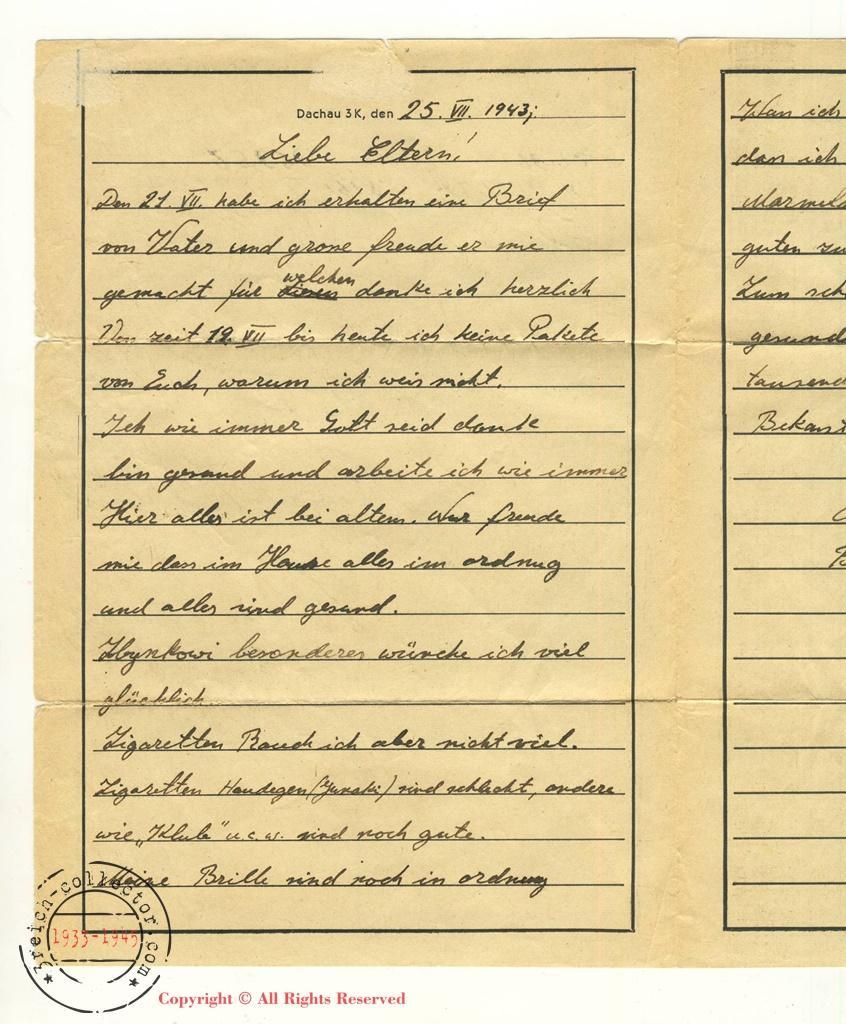 Dachau 3 K, den 25. VII. 1943;
Liebe Eltern!
Den 21. VII. habe ich erhalten eine Brief
von Vater und grosse freude er mie
gemacht für welchen danke ich herzlich
Von zeit 19. VII bis heute ich keine Pakete
von Euch, warum ich weis nicht.
Ich wie immer Gott seid dank
bin gesund und arbeite ich wie immer
Hier alles ist bei altem. Nur freude
mie dass im Hause alles im ordnug
und alles sind gesund.
Zbynkowi besonderes wünche ich viel
glücklich
Zigaretten Rauch ich aber nicht viel.
Zigaretten Haudegen (Junaki) sind schlecht, andere
wie „Klub" u.s.w. sind noch gute.
Meine Brille sind noch in ordnung
Wan ich
das ich
Marmel
guten zu
Zum sch
gesund
tausend
Bekant
3reich-collector.com
1933-1945
Copyright © All Rights Reserved